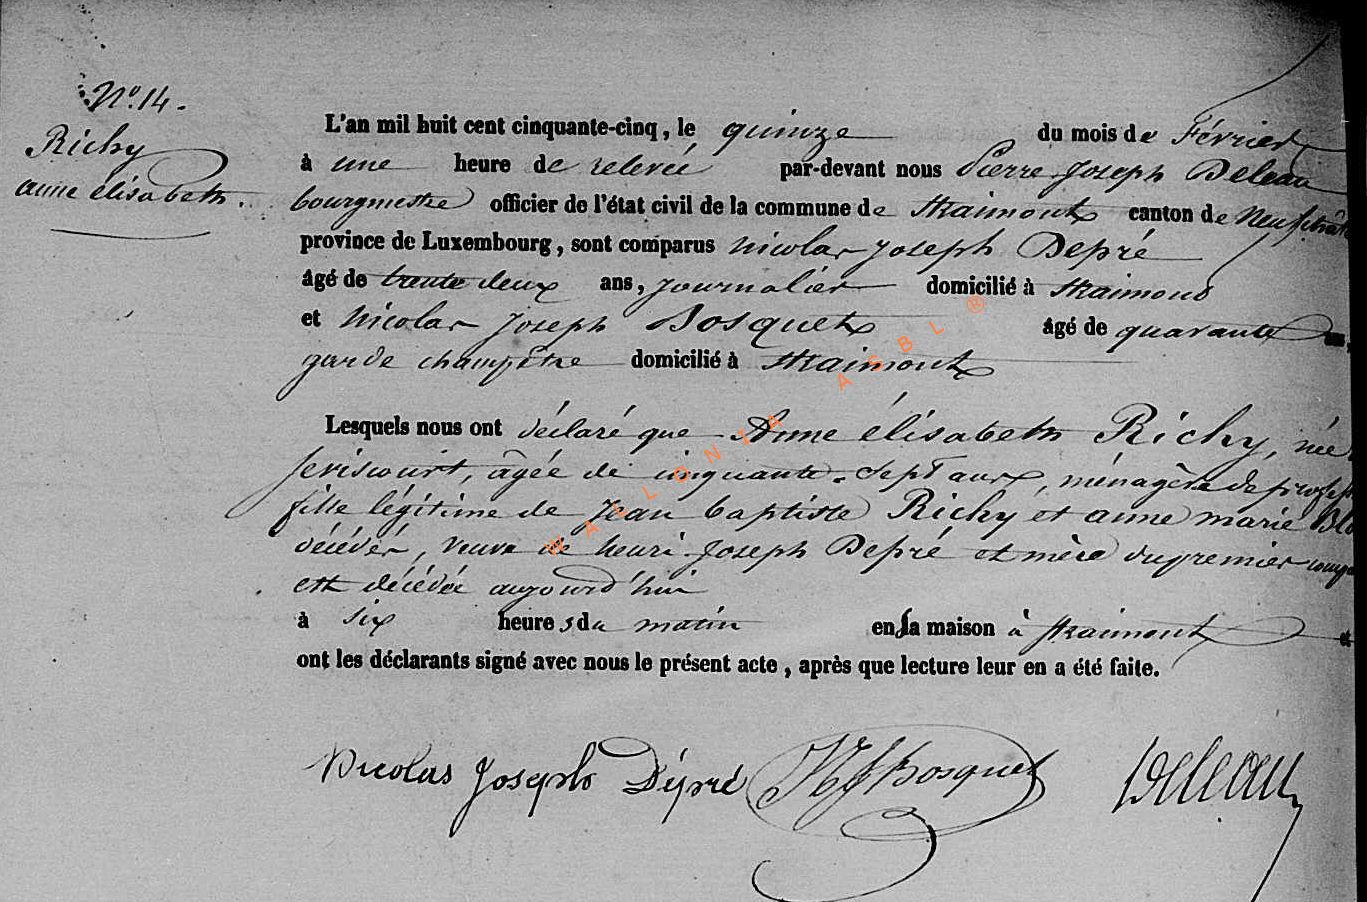 N°. 14.
Richy
anne élisabeth.
L'an mil huit cent cinquante-cinq, le quinze du mois de Février
à une heure de relevée par-devant nous Pierre Joseph Deleau
bourgmestre officier de l'état civil de la commune de Straimont canton de Neufchât
province de Luxembourg, sont comparus Nicolas Joseph Depré
âgé de trente deux ans, journalier domicilié à Straimont
et Nicolas Joseph Bosquet âgé de quarante
garde champêtre domicilié à Straimont
Lesquels nous ont déclaré que Anne élisabeth Richy, née
âgée de cinquante-sept ans, ménagère de profess
fille légitime de Jean baptiste Richy et anne marie
décédés, veuve de henri Joseph Depré et mère du premier comp
est décédée aujourd'hui
à six heures du matin en sa maison à Straimont
ont les déclarants signé avec nous le présent acte, après que lecture leur en a été faite.
Nicolas Joseph Dépré NJ Bosquet Deleau
WALLONIA ASBL ®